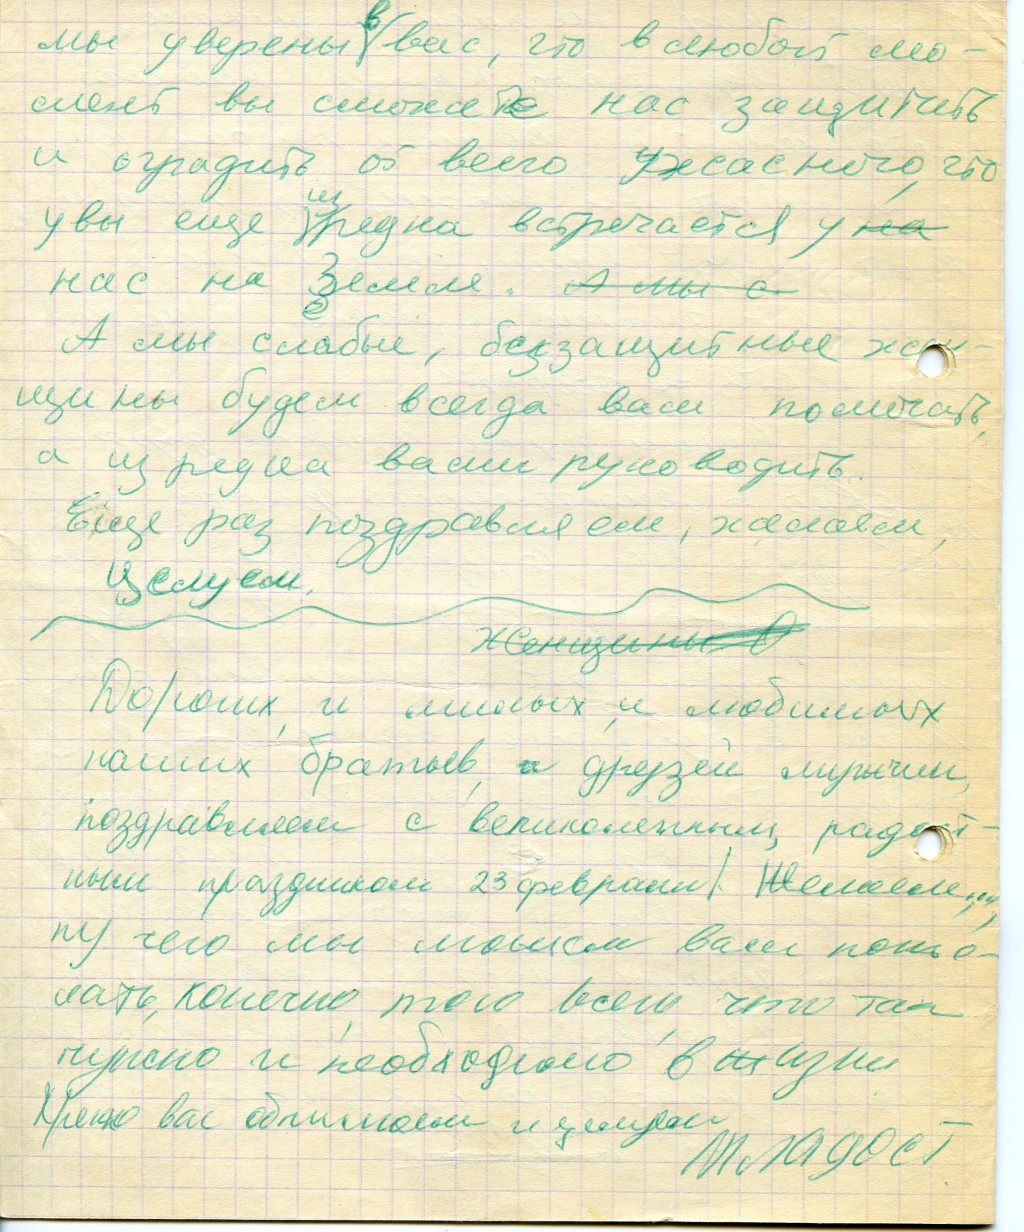 мы уверены в вас, что в любой мо-
мент вы сможете нас защитить
и оградить от всего ужасного, что
увы еще изредка встречается у на
нас на Земле. А мы с
А мы слабые, беззащитные жен-
щины будем всегда вам помогать,
а изредка вами руководить.
Еще раз поздравляем, желаем,
Целуем.
Женщины
Дорогих, и милых, и любимых
наших братьев, и друзей мужчин,
поздравляем с великолепным, радост-
ным праздником 23 февраля! Желаем...,
ну чего мы можем вам поже-
лать, конечно, того всего, что так
нужно и необходимо в жизни
Крепко вас обнимаем и целуем
Младост